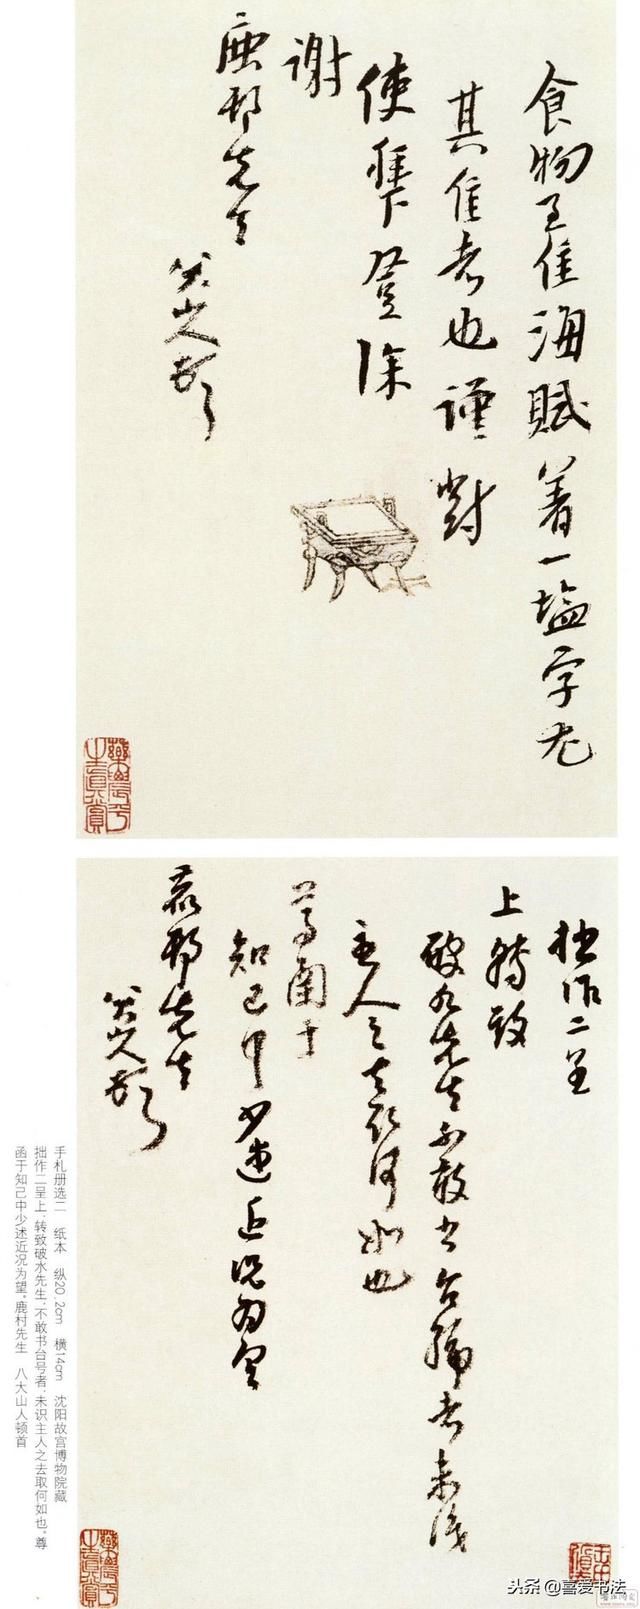 食物至佳海賦着一塩字尤
其佳者也謹對
使拜登深
謝
鹿邨先生
八大山人頓首
拙作二呈
上轉致
破水先生不敢書台號者未識
主人之去取何如也
尊函于
知己中少述近況為望
鹿邨先生
八大山人頓首
手札册选二 纸本 纵20.2cm 横14cm 沈阳故宫博物院藏
拙作二呈上，转致破水先生，不敢书台号者，未识主人之去取何如也。尊
函于知己中少述近况为望。鹿村先生 八大山人顿首
头条@喜爱书法